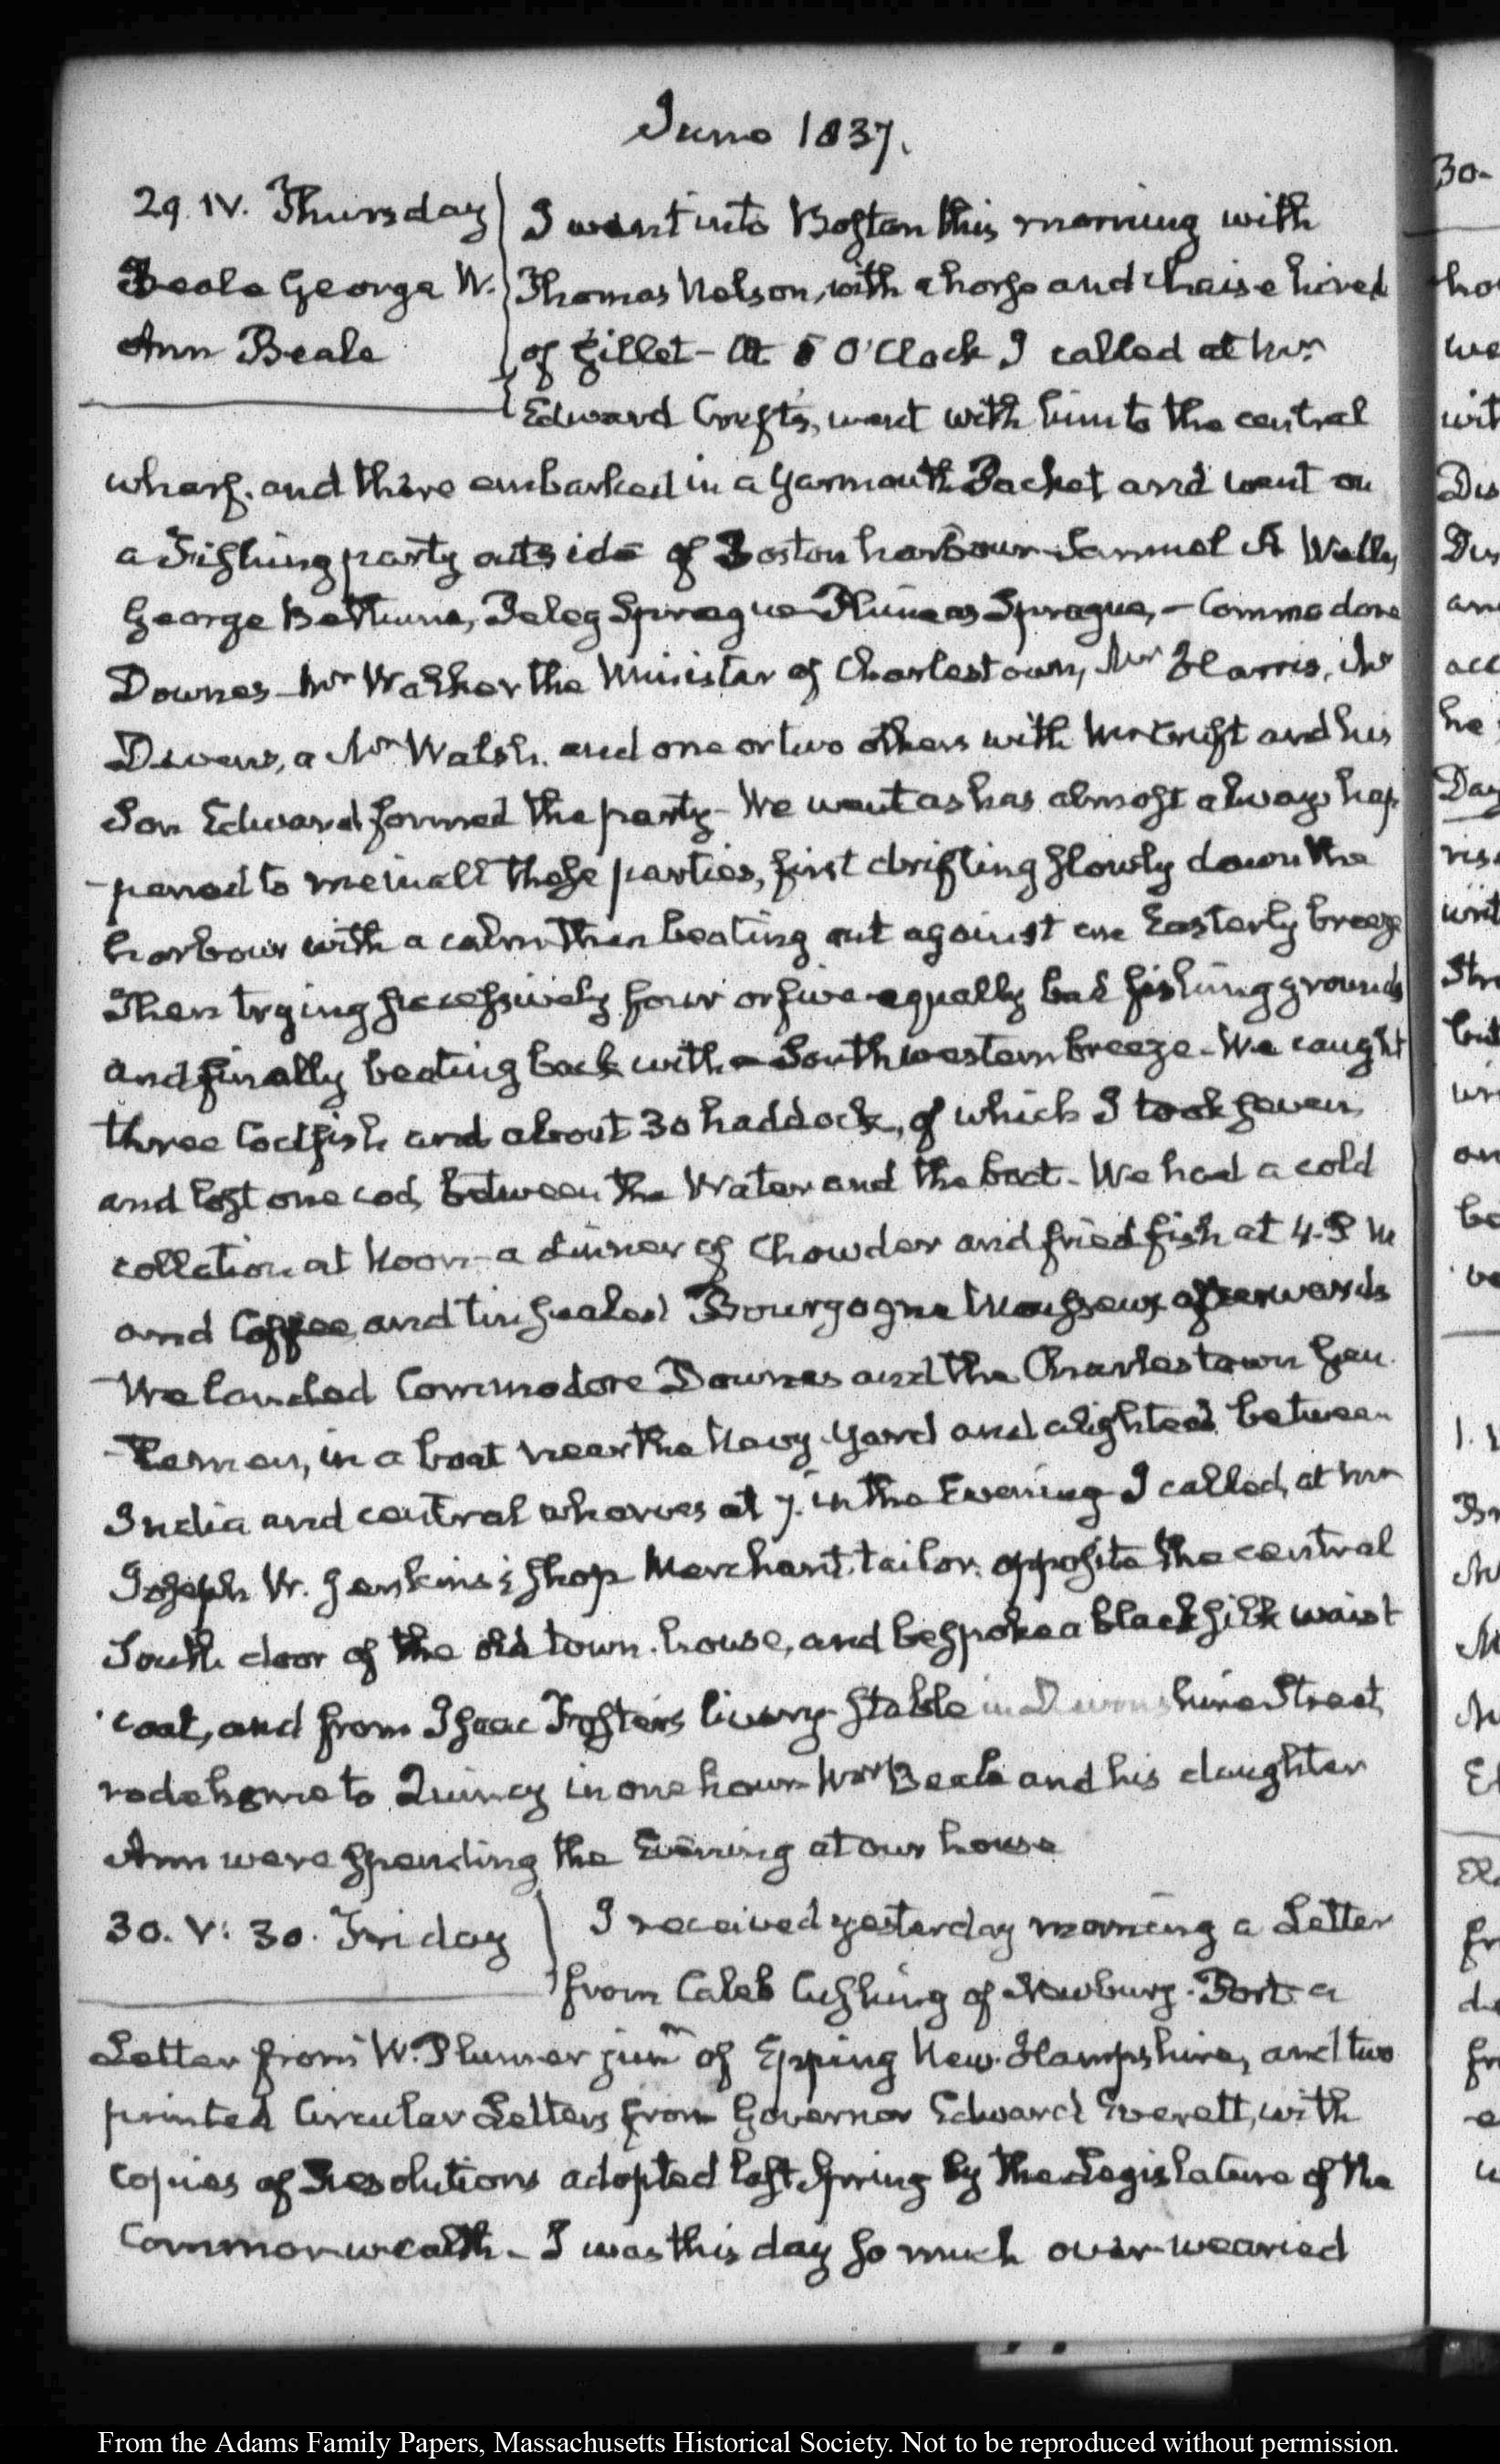 June 1837.
29. IV. Thursday
Beale George W.
Ann Beale
I went into Boston this morning with
Thomas Nelson, with a horse and chaise hired
of Gillet - At 8 O'Clock I called at Mr
Edward Cruft's, went with him to the central
wharf. and there embarked in a Yarmouth Packet and went on
a Fishing party outside of Boston harbour Samuel A Wells,
George Bethune, Peleg Sprague Phineas Sprague, - Commodore
Downes - Mr Walker the Minister of Charlestown, Mr Harris, Mr
Devens, a Mr Walsh. and one or two others with Mr Cruft and his
Son Edward formed the party - We went as has almost always hap
-pened to me in all these parties, first drifting slowly down the
harbour with a calm then beating out against an Easterly breeze
Then trying successively four or five equally bad fishing grounds
and finally beating back with a South western breeze - We caught
three Codfish and about 30 haddock, of which I took seven
and lost one cod, between the Water and the boat - We had a cold
collation at Noon - a dinner of Chowder and fried fish at 4. P M
and Coffee and tin sealed Bourgogne Mousseux afterwards
- We landed Commodore Downes and the Charlestown Gen
-tlemen, in a boat near the Navy Yard and alighted between
India and central wharves at 7. in the Evening I called, at Mr
Joseph W. Jenkins's shop Merchant. tailor. opposite the central
South door of the old town. house, and bespoke a black silk waist
coat, and from Isaac Foster's livery Stable in Devonshire Street,
rode home to Quincy in one hour Mr Beale and his daughter
Ann were spending the Evening at our house
30. V: 30. Friday
I received yesterday morning a Letter
from Caleb Cushing of Newbury. Port a
Letter from W. Plumer junr of Epping New. Hampshire, and two
printed Circular Letters from Governor Edward Everett, with
copies of Resolutions adopted last Spring by the Legislature of the
Commonwealth - I was this day so much over-wearied
From the Adams Family Papers, Massachusetts Historical Society. Not to be reproduced without permission.